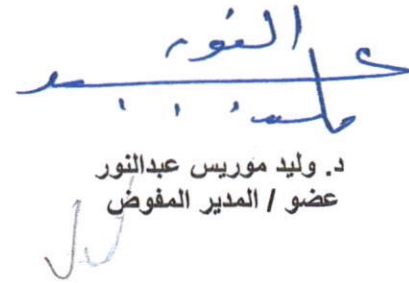 د. وليد موريس عبدالنور
عضو / المدير المفوض